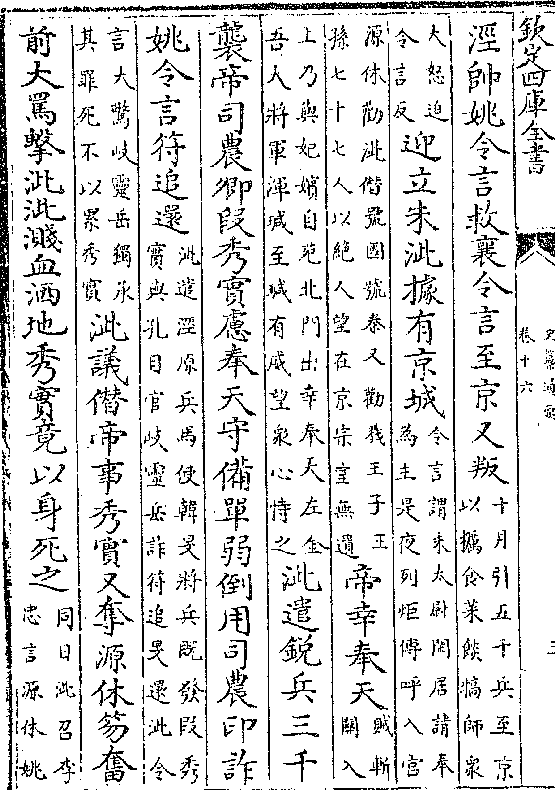 欽定四庫全書
史纂通要
卷十六
涇帥姚令言救襄令言至京又叛
十月引五千兵至京
以糲食菜餤犒師衆
大怒迫
令言反
迎立朱泚據有京城
令言謂朱太尉閒居請奉
為主是夜列炬傳呼入宫
源休勸泚僣號國號秦又勸殺王子王
孫七十七人以絶人望在京宗室無遺
帝幸奉天
賊斬
關入
上乃與妃嬪自苑北門出幸奉天左金
吾人將軍渾瑊至瑊有威望衆心恃之
泚遣鋭兵三千
襲帝司農卿段秀實慮奉天守備單弱倒用司農印詐
姚令言符追還
泚遣涇原兵馬使韓旻將兵既發段秀
實與孔目官岐靈岳詐符追旻還泚令
言大驚岐靈岳獨承
其罪死不以累秀實
泚議僣帝事秀實又奪源休笏奮
前大罵擊泚泚濺血洒地秀實竟以身死之
同日泚召李
忠言源休姚